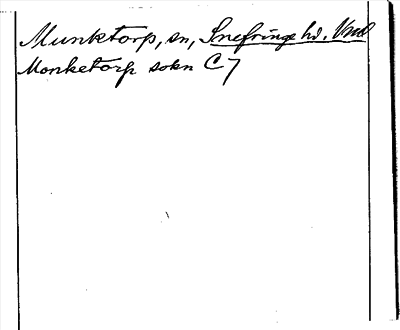 Munktorp, sn, Snefringe hd. Vml
Monketorp sokn C 7